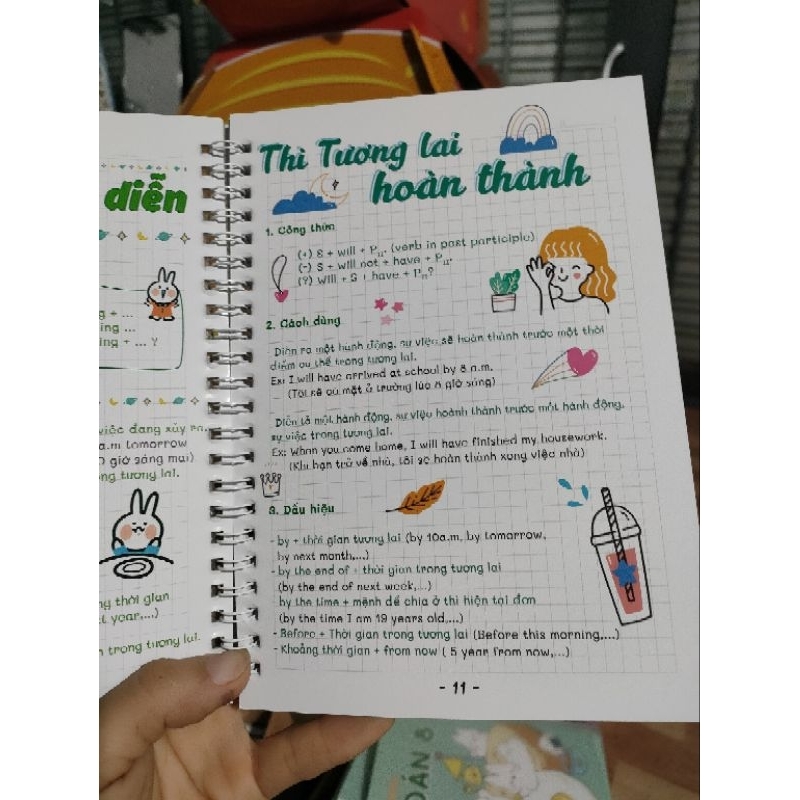 diễn
ng + ...
ing ...
ing + ... ?
việc đang xảy ra
a.m tomorrow
giờ sáng mai)
ng tương lai.
ng thời gian
t year,...)
n trong tương lai.
Thì Tương lai
hoàn thành
1. Công thức
(+) S + will + P₁₁. (verb in past participle)
(-) S + will not + have + P₁₁.
(?) Will + S + have + P₁₁?
2. Cách dùng
Diễn ra một hành động, sự việc sẽ hoàn thành trước một thời
điểm cụ thể trong tương lai.
Ex: I will have arrived at school by 8 a.m.
(Tôi sẽ có mặt ở trường lúc 8 giờ sáng)
Diễn tả một hành động, sự việc hoành thành trước một hành động,
sự việc trong tương lai.
Ex: When you come home, I will have finished my housework.
(Khi bạn trở về nhà, tôi sẽ hoàn thành xong việc nhà)
3. Dấu hiệu
- by + thời gian tương lai (by 10a.m, by tomorrow,
by next month,...)
- by the end of + thời gian trong tương lai
(by the end of next week,...)
by the time + mệnh đề chia ở thì hiện tại đơn
(by the time I am 19 years old,...)
- Before + Thời gian trong tương lai (Before this morning,...)
- Khoảng thời gian + from now ( 5 year from now,...)
- 11 -
OÁN 8